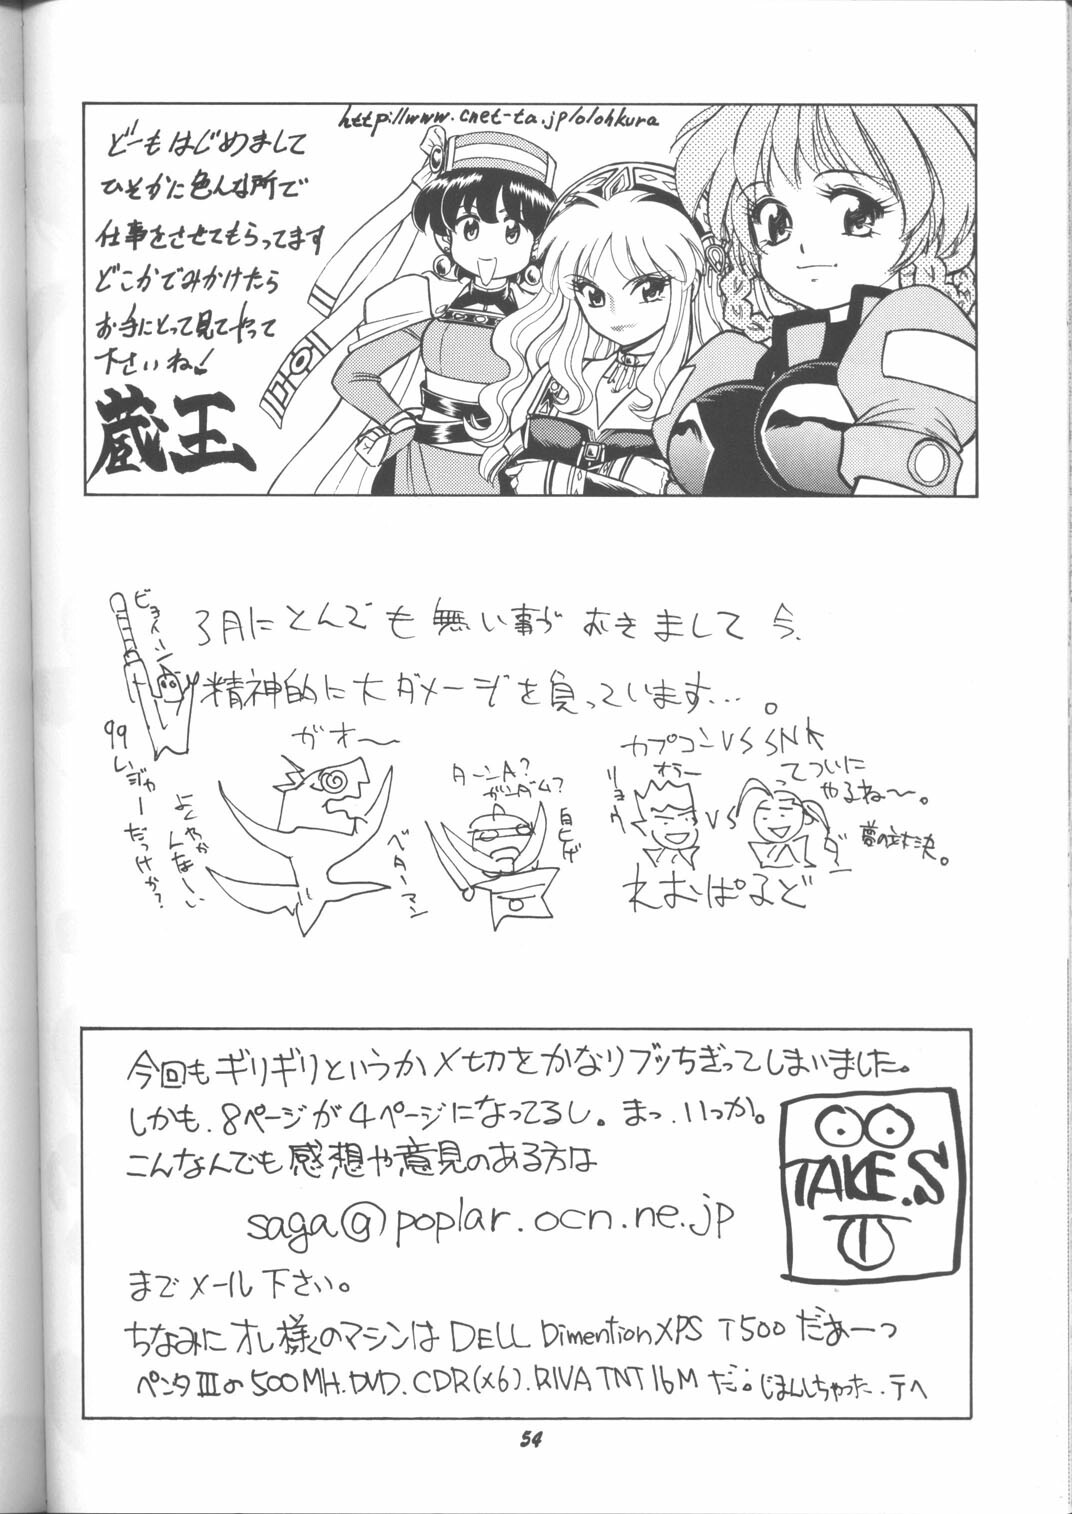 http://www.cnet-ta.jp/o/ohkura
どーもはじめまして
ひそかに色んな所で
仕事をさせてもらってます
どこかでみかけたら
お手にとって見てやって
下さいね!
蔵王
3月にとんでも無い事が おきまして 今、
精神的に大ダメージを負っています…。
99
レンジャーだっけか?
よくわかんなーい
ガオ〜
ベターマン
ターンA?
ガンダム?
白ヒゲ
カプコンVS SNK
ってついに
やるね〜。
夢の対決。
オラー
リョウ
VS
ダン
れおぱるど
今回もギリギリというかメ切をかなりブッちぎってしまいました。
しかも、8ページが4ページになってるし。まっ、いっか。
こんなんでも感想や意見のある方は
saga@poplar.ocn.ne.jp
までメール下さい。
ちなみにオレ様のマシンはDELL Dimention XPS T500だぁーっ
ペンタⅢの500MH.DVD.CDR(x6).RIVA TNT 16Mだ。じまんしちゃった.テヘ
TAKE.S
54